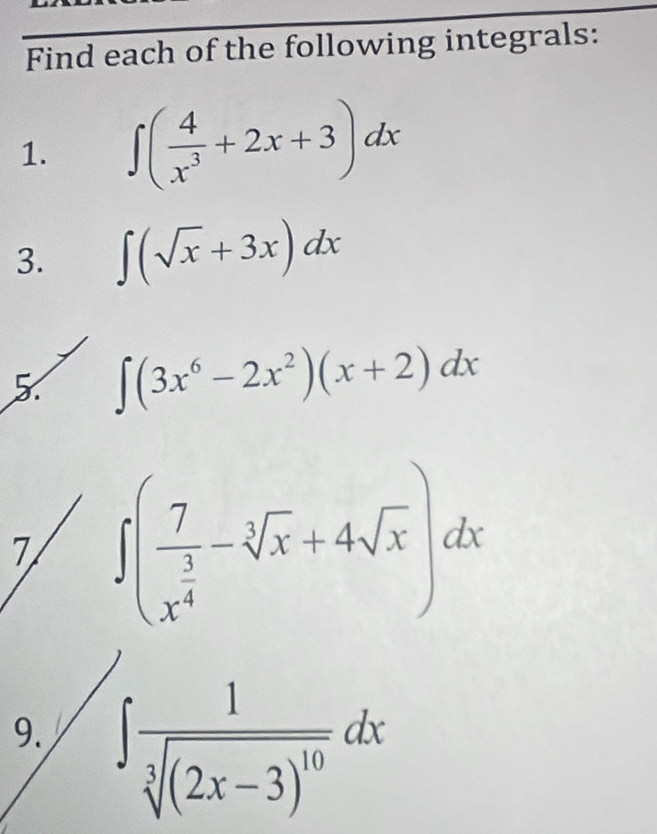 Find each of the following integrals:
1. ∫(4/x³ + 2x + 3) dx
3. ∫(√x + 3x) dx
5. ∫(3x⁶ − 2x²)(x + 2) dx
7. ∫(7/x^(3/4) − ∛x + 4√x) dx
9. ∫ 1/∛((2x − 3)¹⁰) dx